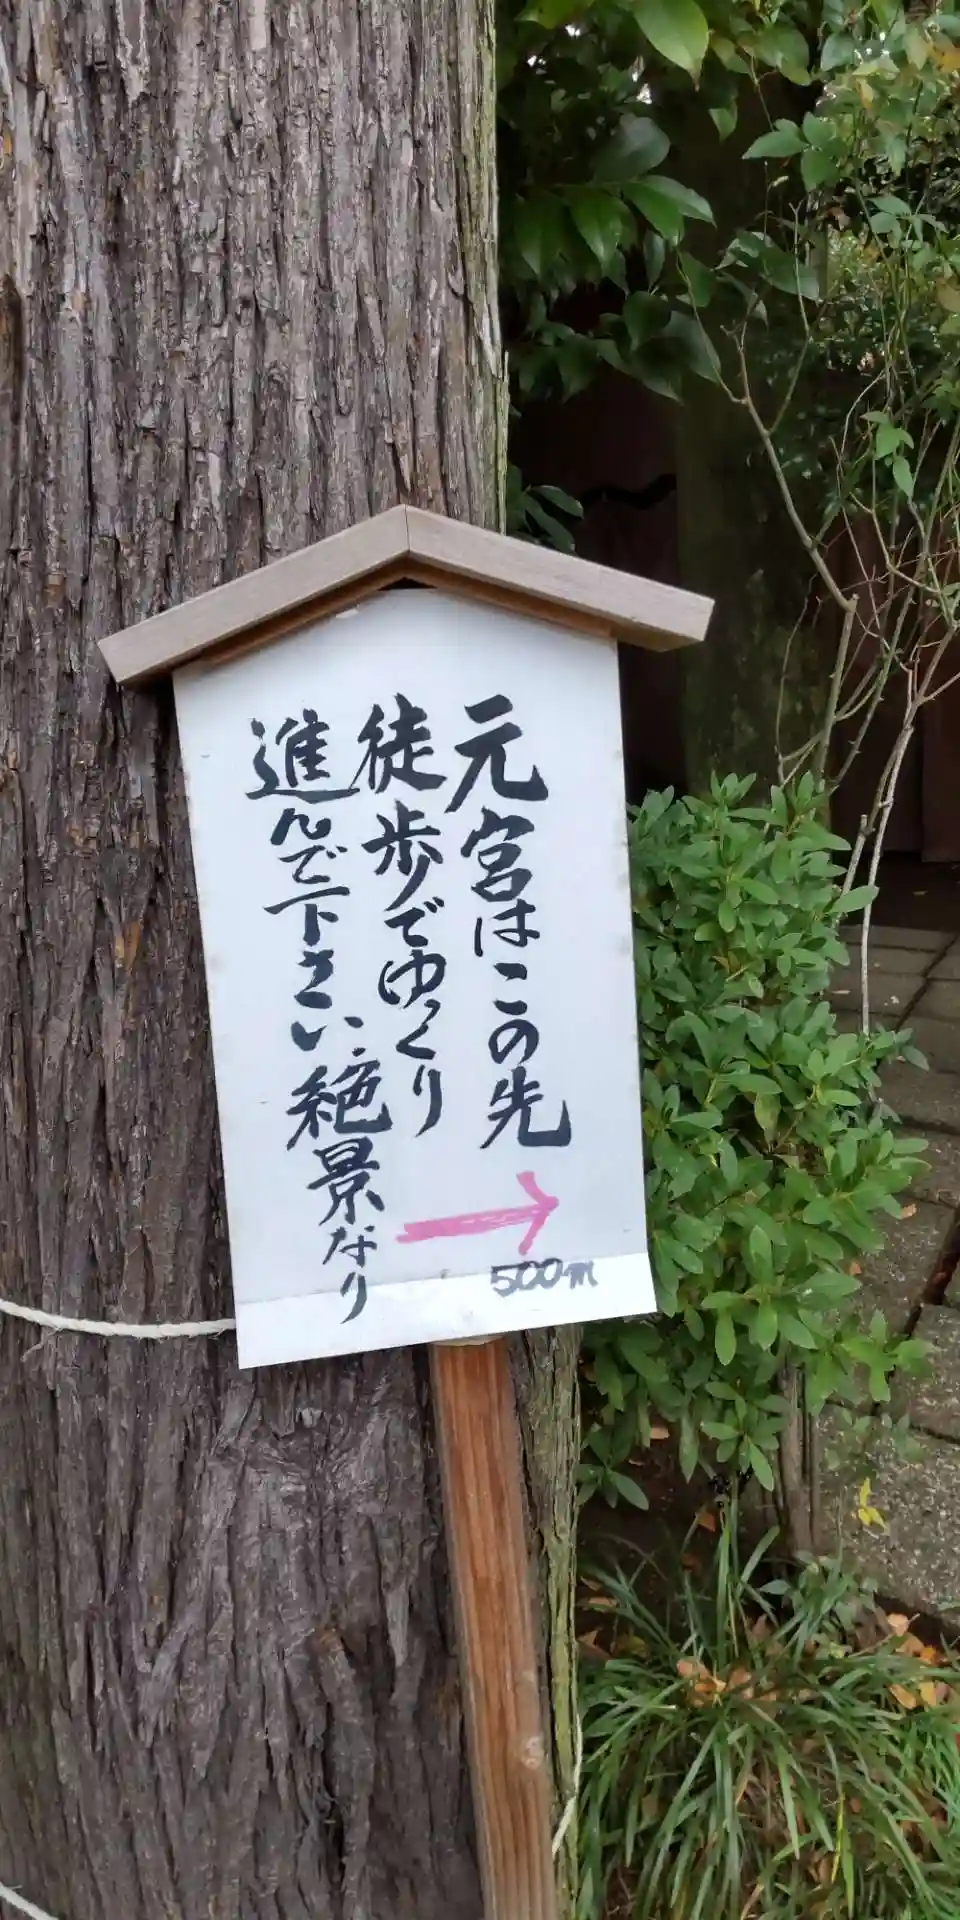 元宮はこの先
徒歩でゆっくり
進んで下さい、絶景なり
→
500m